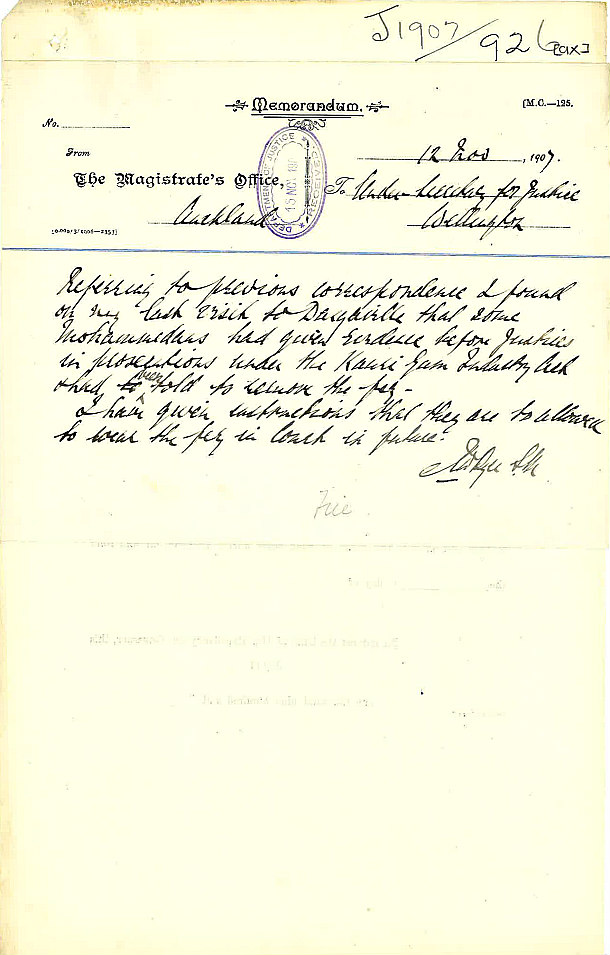 J1907/926 [ax]
Memorandum.
[M.C.—125.
No.
12 Nov, 1907.
From
The Magistrate's Office,
To Under Secretary for Justice
Auckland
Wellington
DEPARTMENT OF JUSTICE
15 NOV 190
RECEIVED
Referring to previous correspondence I found
on my last visit to Dargaville that some
Mohammedans had given evidence before Justices
in prosecutions under the Kauri Gum Industry Act
& had to been told to remove the fez –
I have given instructions that they are to allowed
to wear the fez in Court in future.
S.M.
File